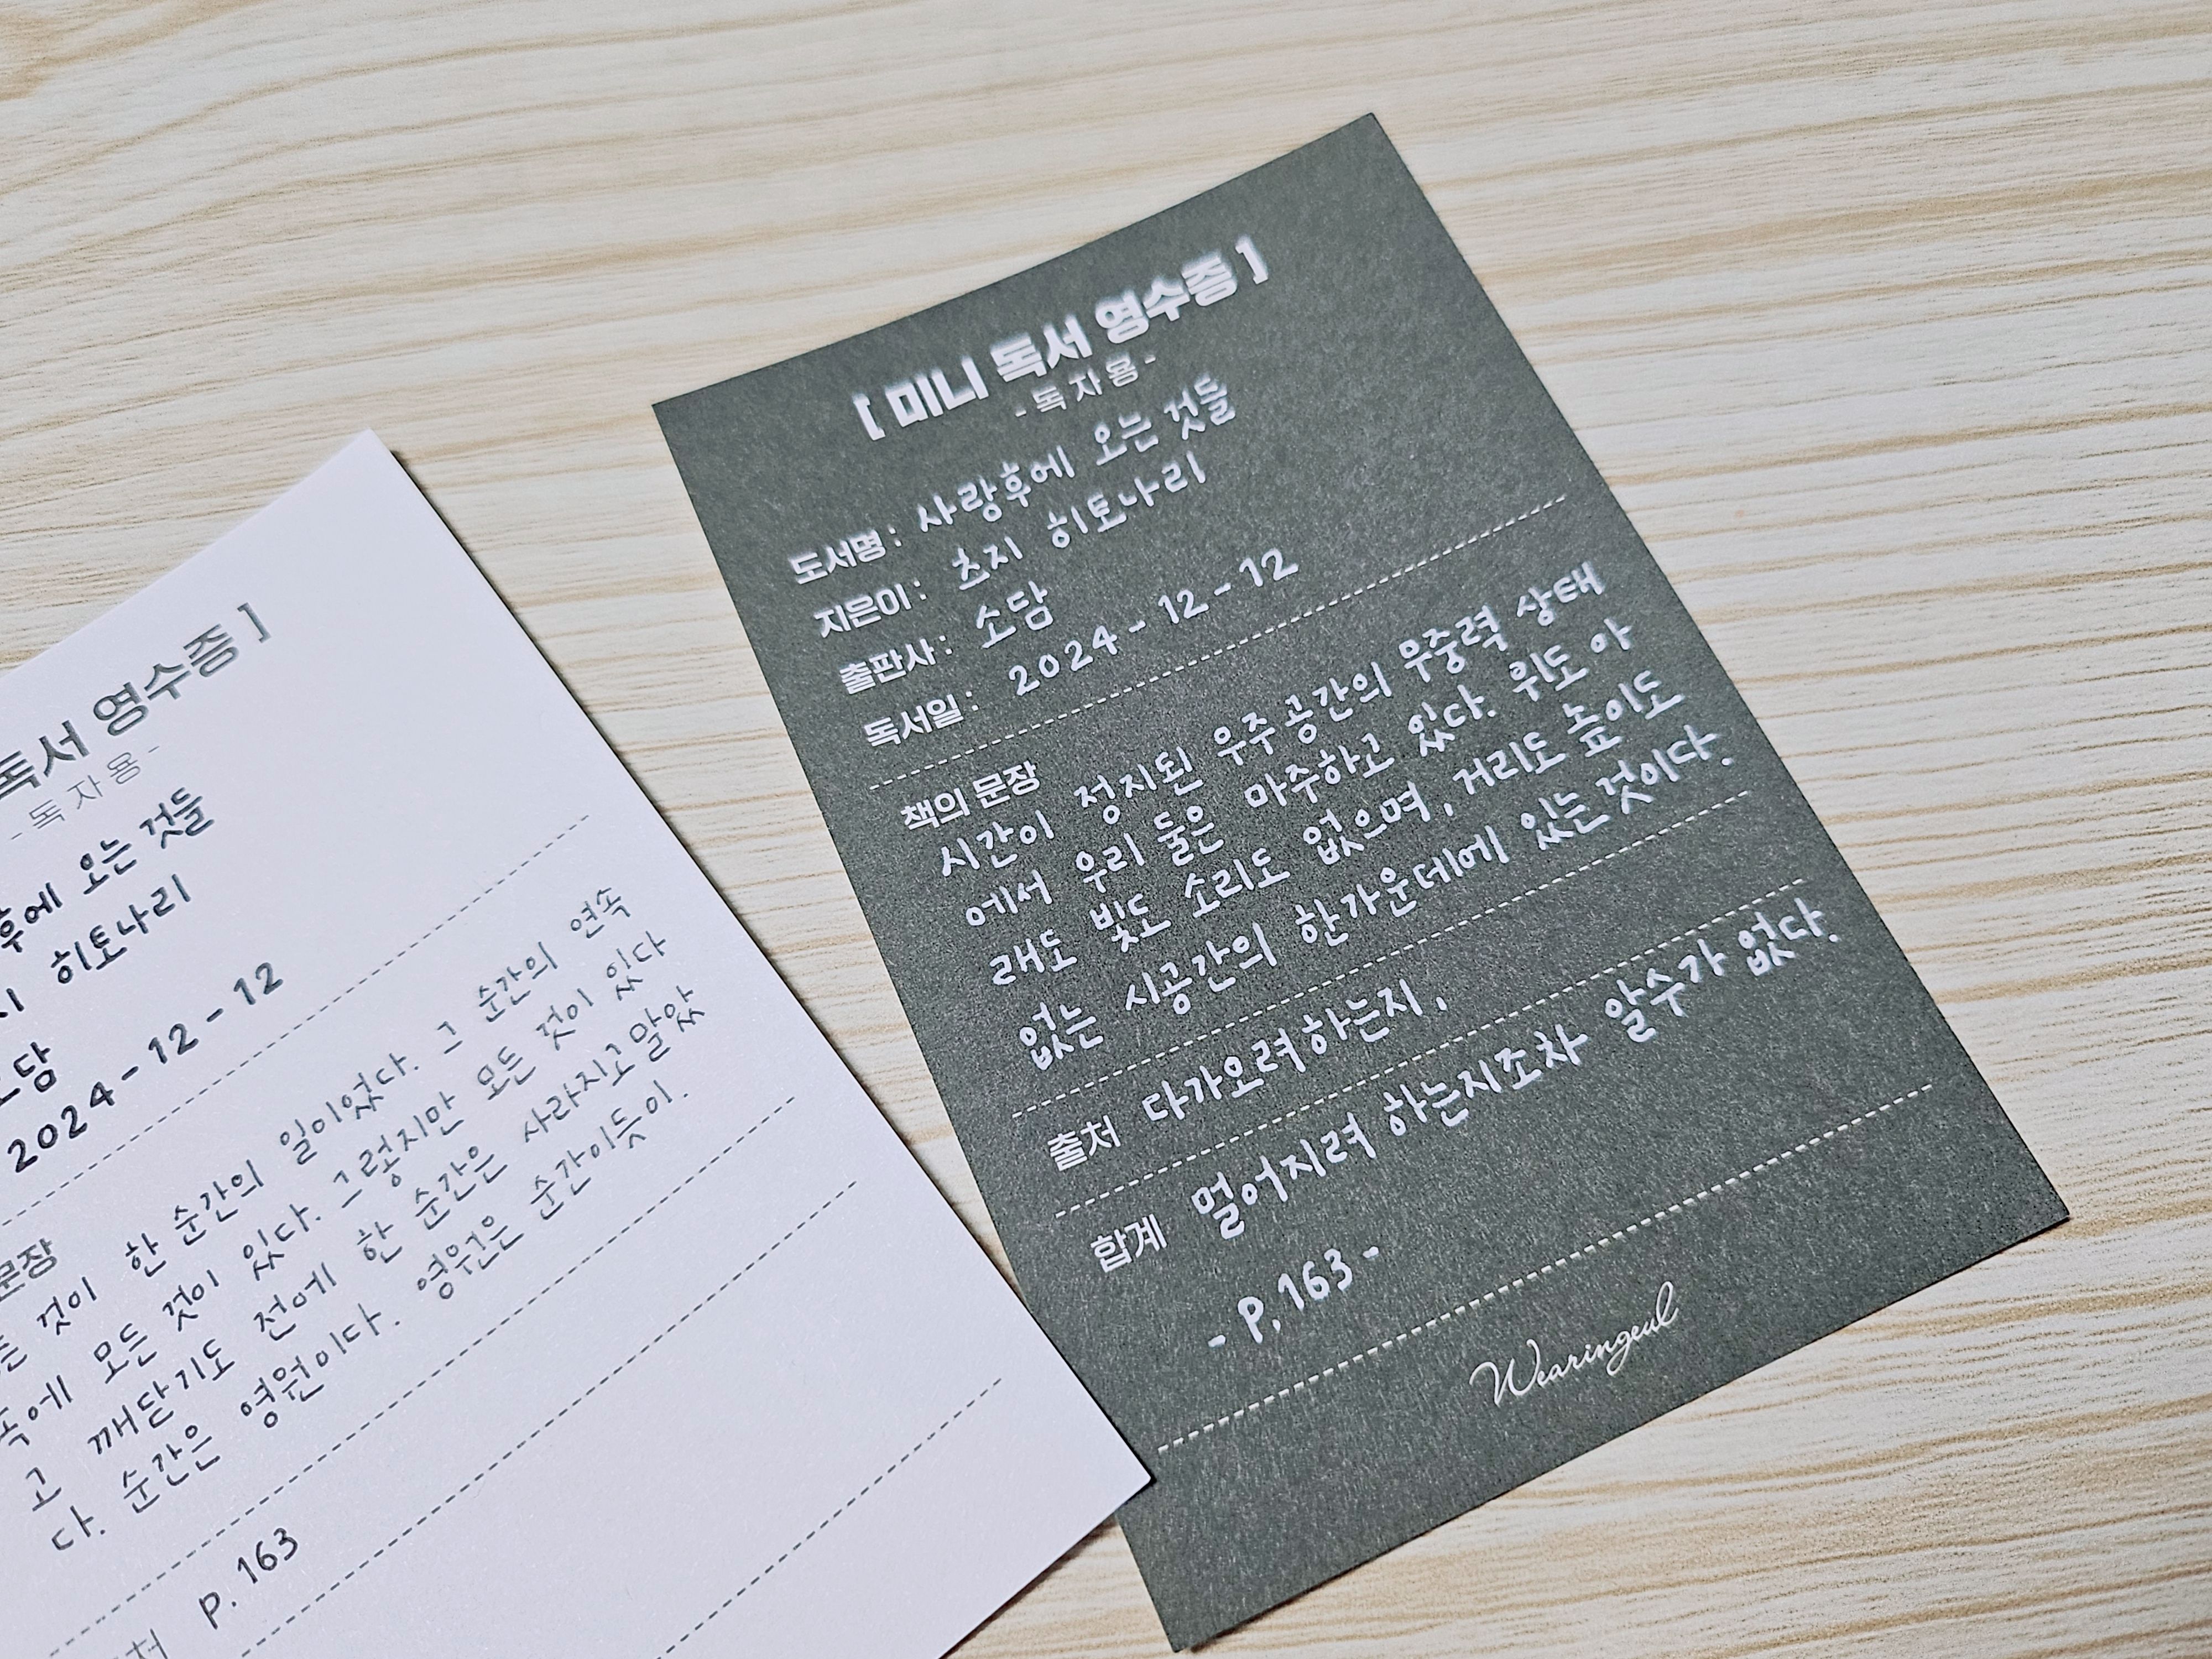 독서 영수증 ]
- 독자용 -
후에 오는 것들
히토나리
소담
2024-12-12
문장
것이 한 순간의 일이었다. 그 순간의 연속
속에 모든 것이 있다. 그렇지만 모든 것이 있다
고 깨닫기도 전에 한 순간은 사라지고말았
다. 순간은 영원이다. 영원은 순간이듯이.
처 P. 163
[ 미니 독서 영수증 ]
- 독자용 -
도서명 : 사랑후에 오는 것들
지은이 : 츠지 히토나리
출판사 : 소담
독서일 : 2024-12-12
책의 문장
시간이 정지된 우주공간의 무중력 상태
에서 우리 둘은 마주하고 있다. 위도 아
래도 빛도 소리도 없으며, 거리도 높이도
없는 시공간의 한가운데에 있는것이다.
출처 다가오려하는지,
합계 멀어지려 하는지조차 알수가 없다.
- P. 163 -
Wearingeul